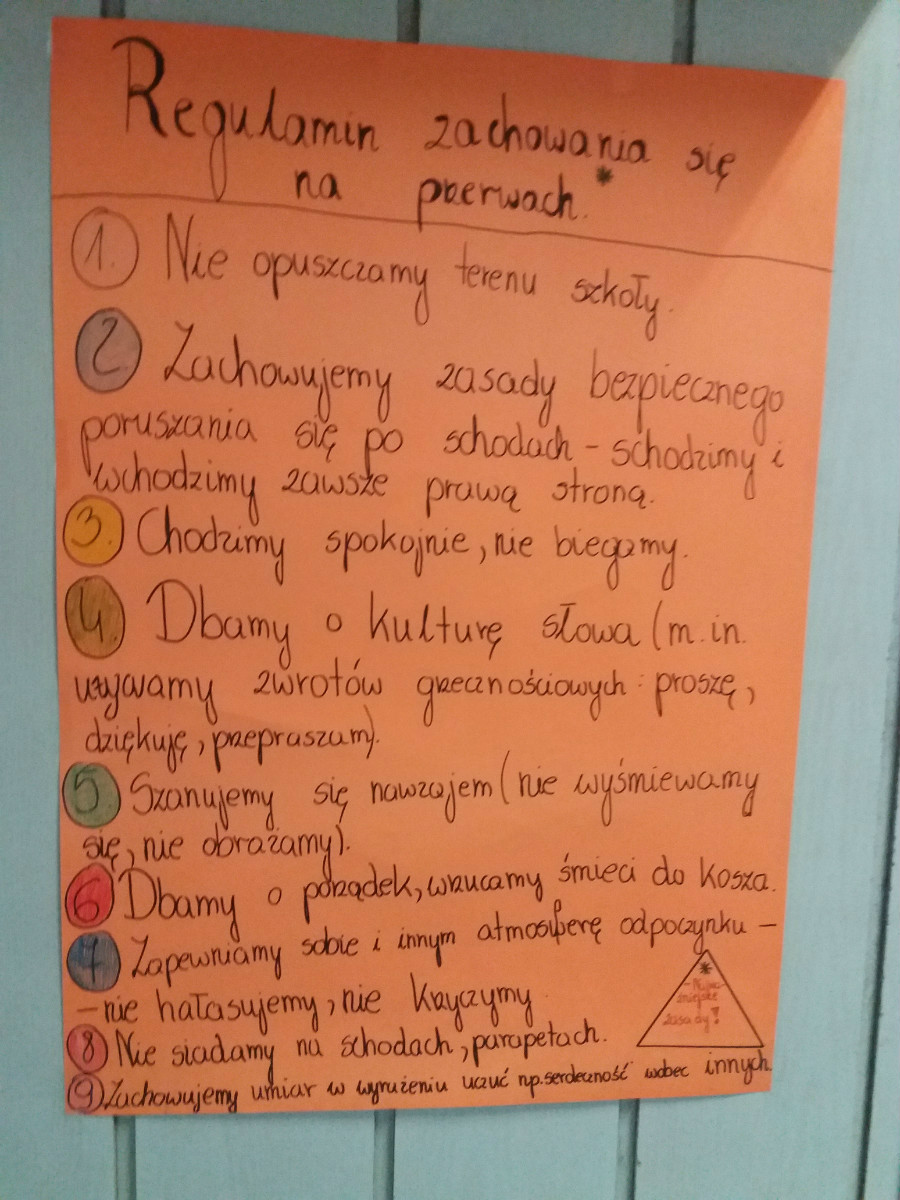 Regulamin zachowania się
na przerwach.*
1. Nie opuszczamy terenu szkoły.
2. Zachowujemy zasady bezpiecznego
poruszania się po schodach - schodzimy i
wchodzimy zawsze prawą stroną.
3. Chodzimy spokojnie, nie biegamy.
4. Dbamy o kulturę słowa (m.in.
używamy zwrotów grzecznościowych: proszę,
dziękuję, przepraszam).
5 Szanujemy się nawzajem (nie wyśmiewamy
się, nie obrażamy).
6 Dbamy o porządek, wrzucamy śmieci do kosza.
7 Zapewniamy sobie i innym atmosferę odpoczynku -
- nie hałasujemy, nie krzyczymy
8 Nie siadamy na schodach, parapetach.
9 Zachowujemy umiar w wyrużeniu uczuć np. serdeczność wobec innych.
*
zasady!